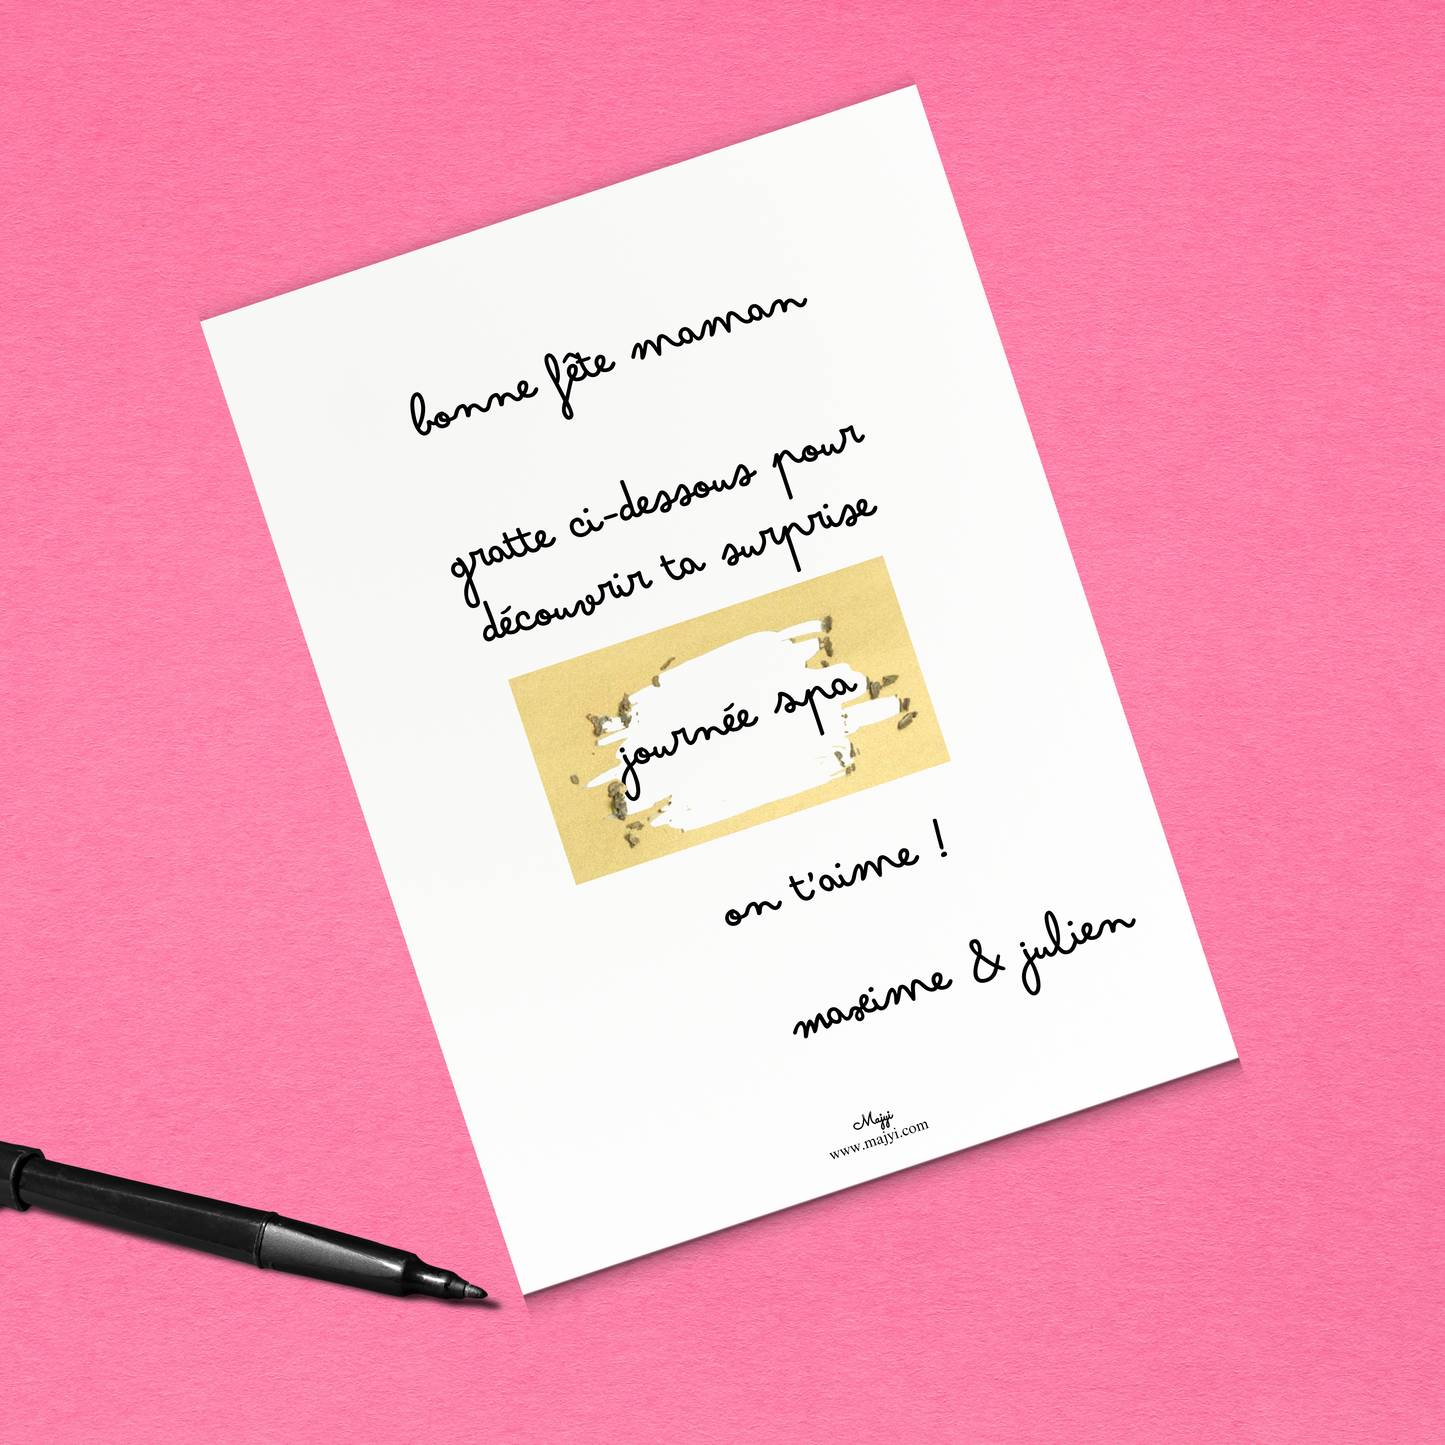 bonne fête maman
gratte ci-dessous pour
découvrir ta surprise
journée spa
on t'aime !
maxime & julien
Majyi
www.majyi.com